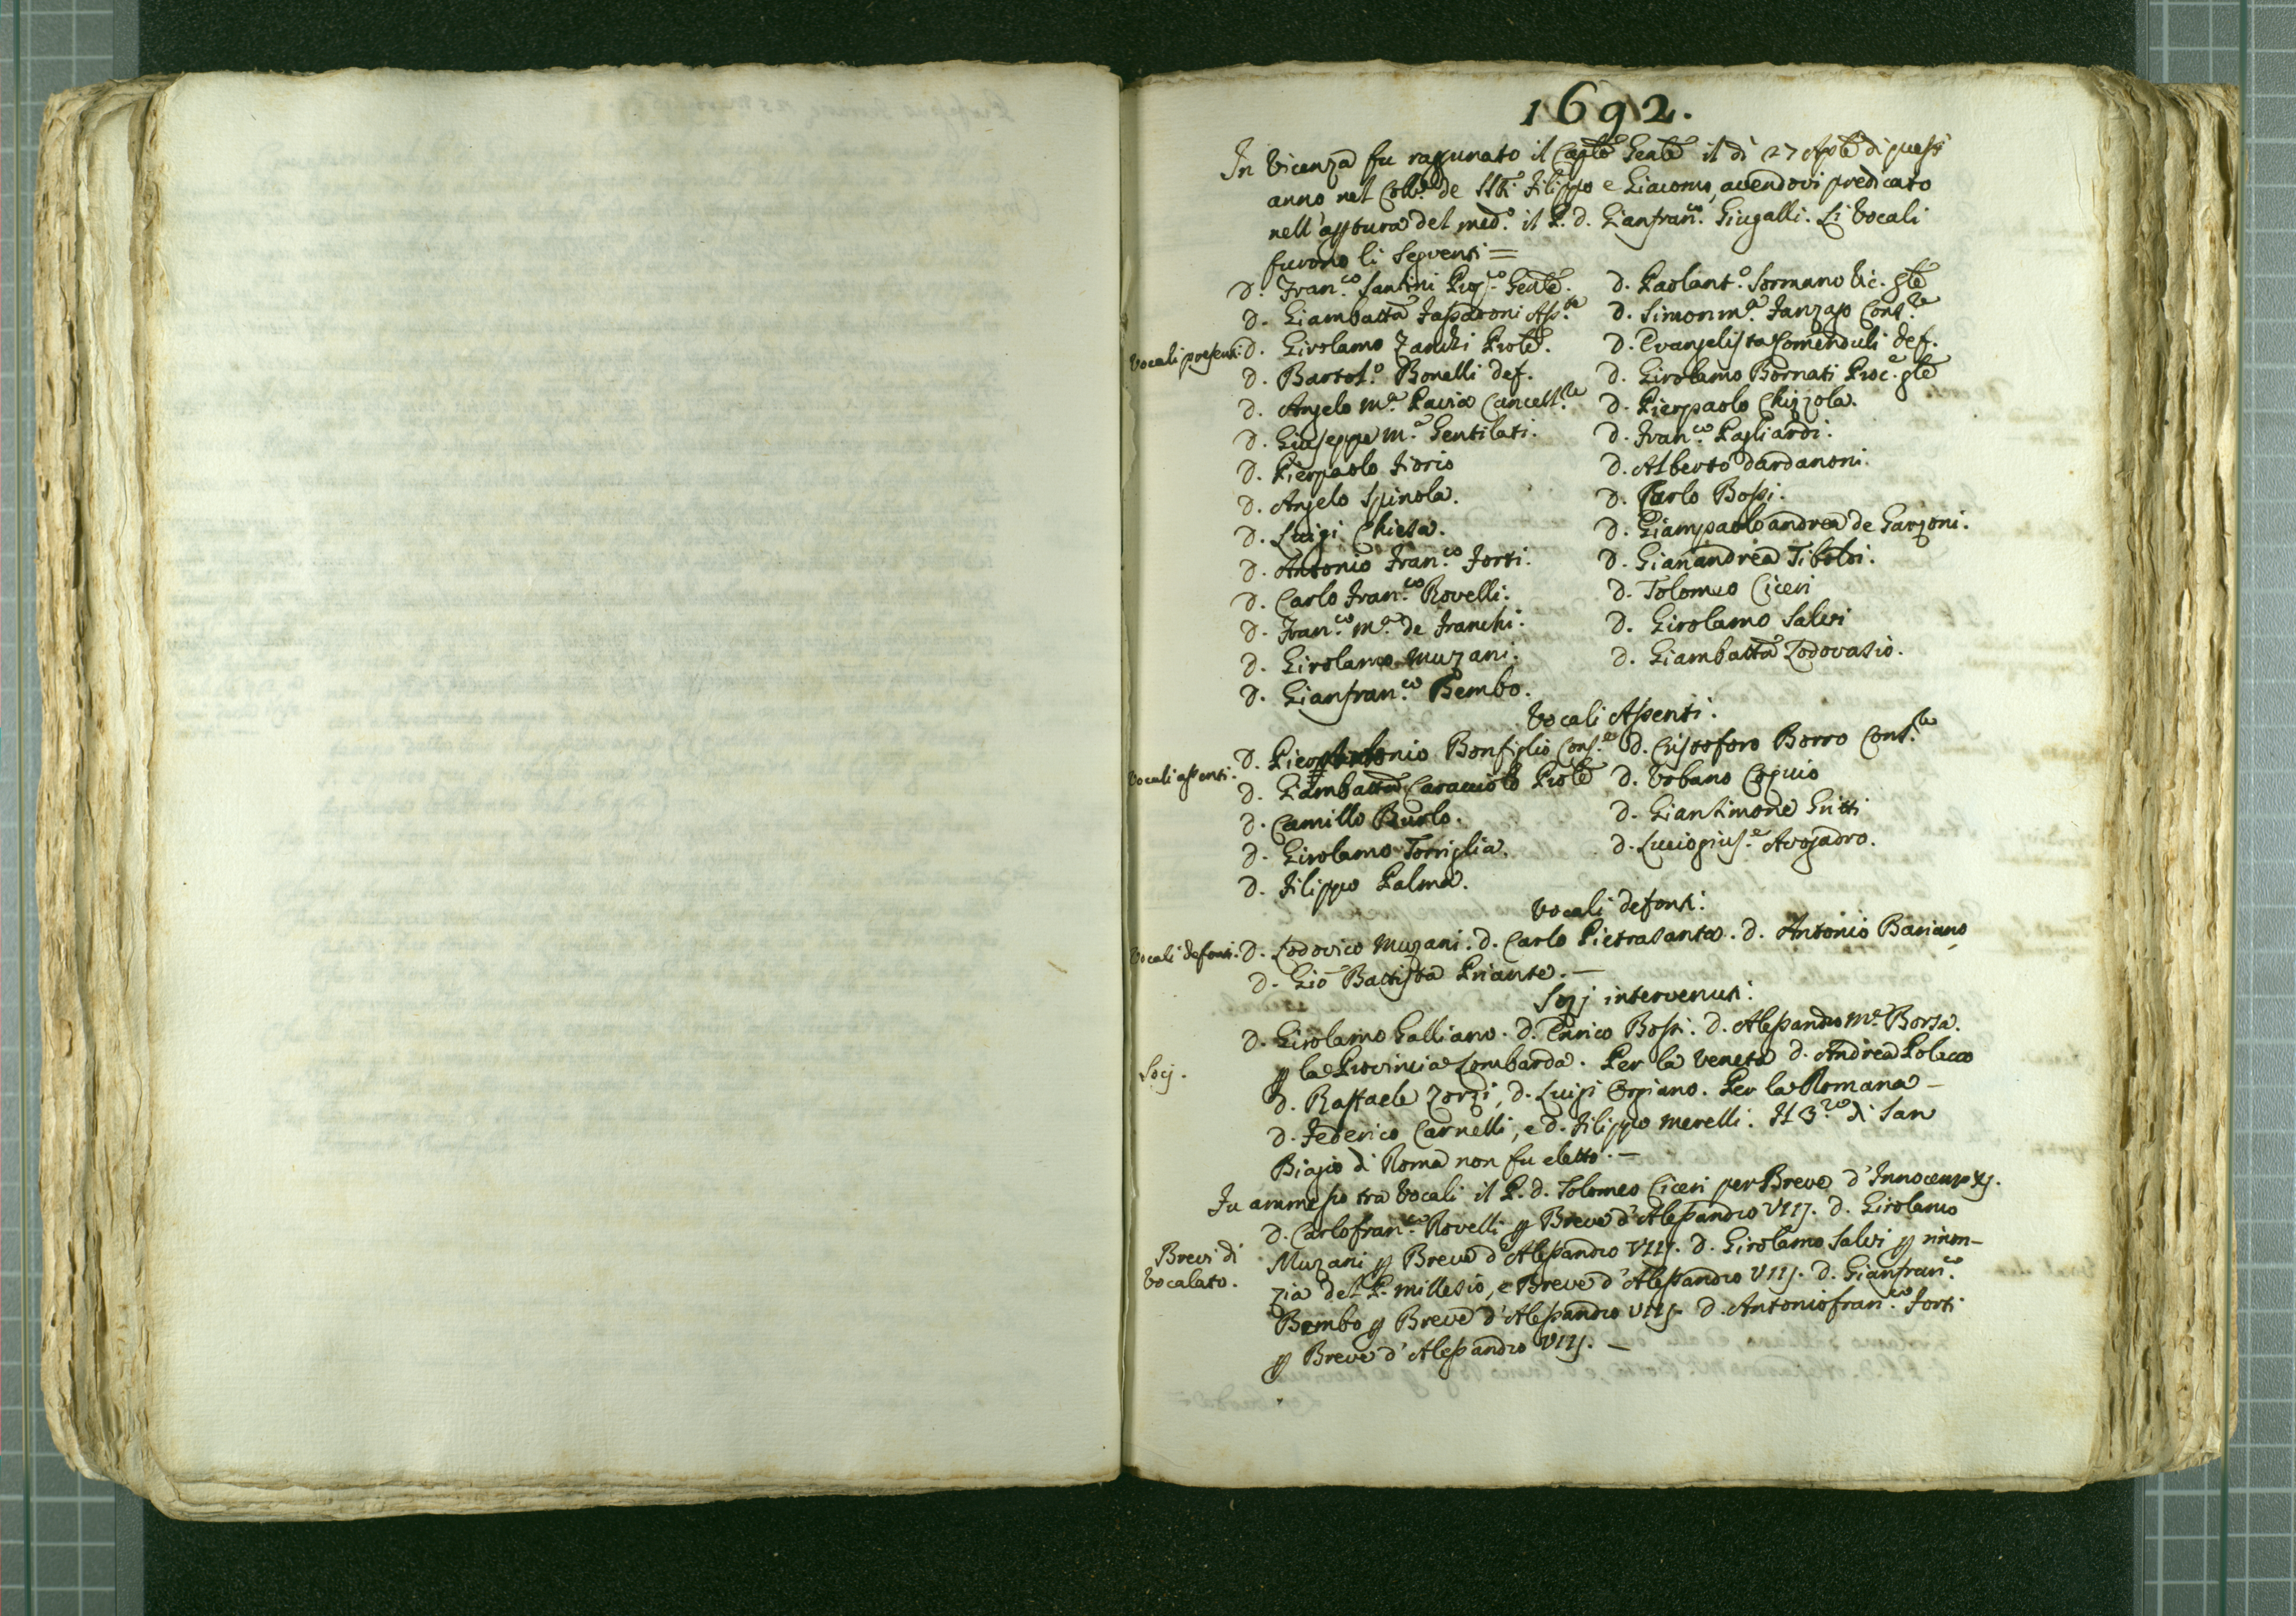 1692.
In Vicenza fu ragunato il Caplo Genle il dì 27 Aple di quest'
anno nel Collo de SSti Filippo e Giacomo, avendovi predicato
nell'aptura del medo. il P. D. Gianfranco. Giugalli. Li Vocali
furono li seguenti =
D. Franco. Santini Prepto Genle.
D. Giambatta Gasparoni Assnte
Vocali presenti. D. Girolamo Zanchi Prole.
D. Bartolo. Bonelli def.
D. Angelo Ma. Pavia Cancellre
D. Giuseppe Ma. Gentilati.
D. Pierpaolo Fiorio
D. Angelo Spinola.
D. Luigi Chiesa.
D. Antonio Franco. Forti.
D. Carlo Franco. Rovelli.
D. Franco. Ma. de Franchi.
D. Girolamo Muzani.
D. Gianfranco. Bembo.
D. Paolanto. Sormano Vic. gle
D. Simonma. Fanzago Consre
D. Evangelista Somenduli def.
D. Girolamo Bornati Proc. gle
D. Pierpaolo Chizzola.
D. Franco. Pagliardi.
D. Alberto Dardanoni.
D. Carlo Bossi.
D. Giampaoloandrea de Garzoni.
D. Gianandrea Tiboldi.
D. Tolomeo Ciceri
D. Girolamo Salvi
D. Giambatta Lodovasio.
Vocali Assenti.
Vocali assenti. D. Pierantonio Bonfiglio Consre D. Cristoforo Borro Consre
D. Giambatta Caracciolo Prole D. Urbano Copuio
D. Camillo Burlo. D. Giansimone Gritti
D. Girolamo Torriglia. D. Luciogiuse. Avogadro.
D. Filippo Palma.
Vocali defonti.
Vocali defonti. D. Lodovico Muzani. D. Carlo Pietrasanta. D. Antonio Bariano,
D. Gio Battista Priante. —
Socj intervenuti.
D. Girolamo Galliano. D. Enrico Bossi. D. Alessandro Ma. Borsa.
Socj. p la Provincia Lombarda. Per la Veneta D. Andrea Polacco
D. Raffaele Zorzi, D. Luigi Orgiano. Per la Romana —
D. Federico Carnelli, e D. Filippo Merelli. Il 3zo di San
Biagio di Roma non fu eletto. —
Fu ammesso tra Vocali il P. D. Tolomeo Ciceri per Breve d'Innocenzo XI.
D. Carlofranco. Rovelli p Breve d'Alessandro VIIJ. D. Girolamo
Brevi di
Vocalato.
Muzani p Breve d'Alessandro VIIJ. D. Girolamo Salvi p rinon-
zia del P. Millesio, e Breve d'Alessandro VIIJ. D. Gianfranco.
Bembo p Breve d'Alessandro VIIJ. D. Antoniofranco. Forti
p Breve d'Alessandro VIIJ. —